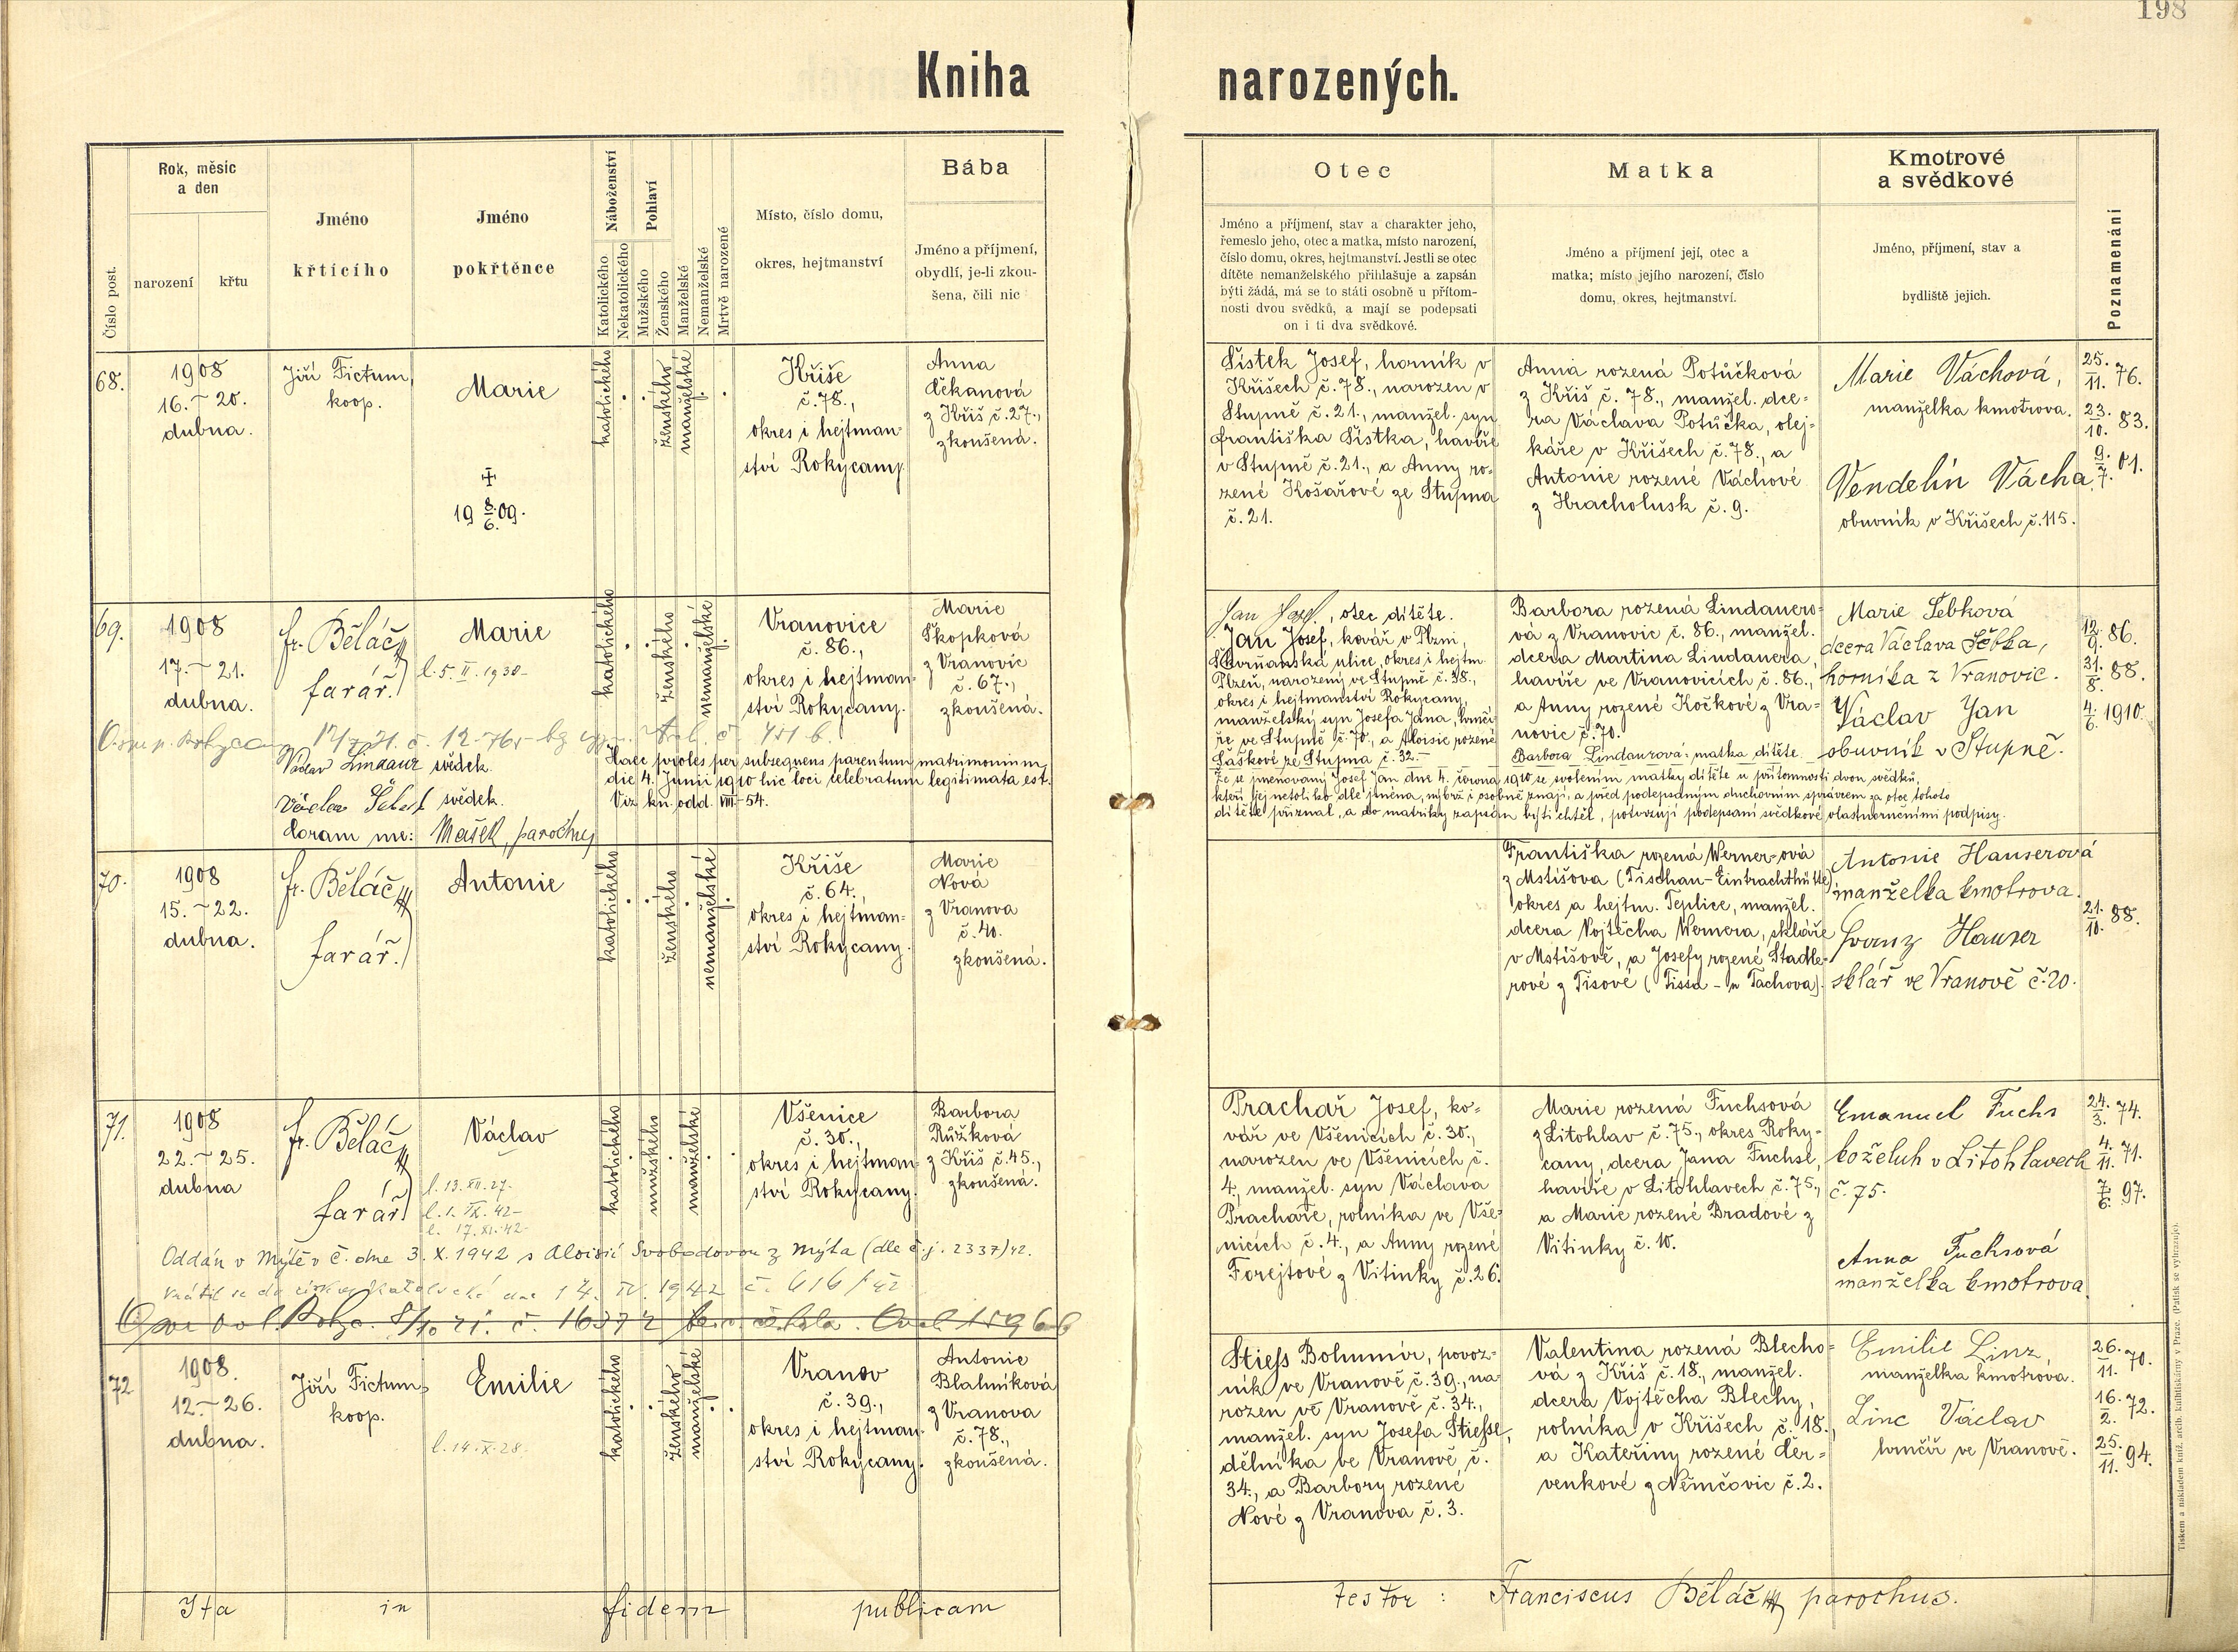 198
Kniha narozených.
Číslo post.
Rok, měsíc
a den
narození
křtu
Jméno
křtícího
Jméno
pokřtěnce
Náboženství
Katolického
Nekatolického
Pohlaví
Mužského
Ženského
Manželské
Nemanželské
Mrtvě narozené
Místo, číslo domu,
okres, hejtmanství
Bába
Jméno a příjmení,
obydlí, je-li zkou-
šena, čili nic
Otec
Jméno a příjmení, stav a charakter jeho,
řemeslo jeho, otec a matka, místo narození,
číslo domu, okres, hejtmanství. Jestli se otec
dítěte nemanželského přihlašuje a zapsán
býti žádá, má se to státi osobně u přítom-
nosti dvou svědků, a mají se podepsati
on i ti dva svědkové.
Matka
Jméno a příjmení její, otec a
matka; místo jejího narození, číslo
domu, okres, hejtmanství.
Kmotrové
a svědkové
Jméno, příjmení, stav a
bydliště jejich.
Poznamenání
68.
1908
16. – 20.
dubna.
Jiří Fictum,
koop.
Marie
19 8/6. 09.
katolického
ženského
manželské
Kříše
č. 78.,
okres i hejtman-
ství Rokycany.
Anna
Čekanová
z Kříš č. 27.,
zkoušená.
Šístek Josef, horník v
Kříšech č. 78., narozen v
Stupně č. 21., manžel. syn
Františka Šístka, havíře
v Stupně č. 21., a Anny ro-
zené Košařové ze Stupna
č. 21.
Anna rozená Potůčková
z Kříš č. 78., manžel. dce-
ra Václava Potůčka, olej-
káře v Kříšech č. 78., a
Antonie rozené Váchové
z Hracholusk č. 9.
Marie Váchová,
manželka kmotrova.
Vendelín Vácha,
obuvník v Kříšech č. 115.
25./11. 76.
23./10. 83.
9./7. 01.
69.
1908
17. – 21.
dubna.
fr. Běláč
farář.
Marie
l. 5. II. 1938
katolického
ženského
nemanželské
Vranovice
č. 86.,
okres i hejtman-
ství Rokycany.
Marie
Škopková
z Vranovic
č. 67.,
zkoušená.
Václav Lindaur svědek.
svědek.
Coram me: Mašek, parochus
Haec proles per subsequens parentum matrimonium
die 4. Junii 1910 hic loci celebratum legitimata est.
Viz kn. odd. VIII. 54.
Jan Josef, otec dítěte.
Jan Josef, kovář v Plzni,
Skvrňanská ulice, okres i hejtm.
Plzeň, narozený ve Stupně č. 38.,
okres i hejtmanství Rokycany,
manželský syn Josefa Jana,
ve Stupně č. 70., a Aloisie rozené
Šaškové ze Stupna č. 32.
Barbora rozená Lindauero-
vá z Vranovic č. 86., manžel.
dcera Martina Lindauera,
havíře ve Vranovicích č. 86.,
a Anny rozené Kočkové z Vra-
novic č. 70.
Barbora Lindaurová, matka dítěte
Že se jmenovaný Josef Jan dne 4. června 1910 se svolením matky dítěte u přítomnosti dvou svědků,
kteří jej netoliko dle jména, nýbrž i osobně znají, a před podepsaným duchovním správcem za otce tohoto
dítěte přiznal, a do matriky zapsán býti chtěl, potvrzují podepsaní svědkové vlastnoručními podpisy.
Marie Šebková
dcera Václava Šebka,
horníka z Vranovic.
Václav Jan
obuvník v Stupně.
12./9. 86.
31./8. 88.
4./6. 1910.
70.
1908
15. – 22.
dubna.
fr. Běláč
farář.
Antonie
katolického
ženského
nemanželské
Kříše
č. 64.,
okres i hejtman-
ství Rokycany.
Marie
Nová
z Vranova
č. 40.
zkoušená.
Františka rozená Werner-ová
z Mstišova (Tischau-Eintrachthütte)
okres a hejtm. Teplice, manžel.
dcera Vojtěcha Wernera, skláře
v Mstišově, a Josefy rozené Stadle-
rové z Tisové (Tissa - u Tachova).
Antonie Hauserová
manželka kmotrova.
Franz Hauser
sklář ve Vranově č. 20.
21./10. 88.
71.
1908
22. – 25.
dubna
fr. Běláč
farář
Václav
l. 13. XII. 27.
l. 1. IX. 42
l. 17. XI. 42
katolického
mužského
manželské
Všenice
č. 30.,
okres i hejtman-
ství Rokycany.
Barbora
Růžková
z Kříš č. 45.,
zkoušená.
Oddán v Mýtě v Č. dne 3. X. 1942 s Aloisií Svobodovou z Mýta (dle č. j. 2337/42.
Vrátil se do církve katolické dne 14. IV. 1942 č. 616/42
Prachař Josef, ko-
vář ve Všenicích č. 30.,
narozen ve Všenicích č.
4., manžel. syn Václava
Prachaře, rolníka ve Vše-
nicích č. 4., a Anny rozené
Forejtové z Vitinky č. 26.
Marie rozená Fuchsová
z Litohlav č. 75., okres Roky-
cany, dcera Jana Fuchse,
havíře v Litohlavech č. 75.,
a Marie rozené Bradové z
Vitinky č. 10.
Emanuel Fuchs
koželuh v Litohlavech
č. 75.
Anna Fuchsová
manželka kmotrova.
24./3. 74.
4./11. 71.
7./6. 97.
72
1908.
12. – 26.
dubna.
Jiří Fictum,
koop.
Emilie
l. 14. X. 28.
katolického
ženského
manželské
Vranov
č. 39.,
okres i hejtman-
ství Rokycany.
Antonie
Blahníková
z Vranova
č. 78.,
zkoušená.
Stiess Bohumír, povoz-
ník ve Vranově č. 39., na-
rozen ve Vranově č. 34.,
manžel. syn Josefa Stiesse,
dělníka ve Vranově č.
34., a Barbory rozené
Nové z Vranova č. 3.
Valentina rozená Blecho-
vá z Kříš č. 18., manžel.
dcera Vojtěcha Blechy,
rolníka v Kříšech č. 18.,
a Kateřiny rozené Čer-
venkové z Němčovic č. 2.
Emilie Linz,
manželka kmotrova.
Linc Václav
hrnčíř ve Vranově.
26./11. 70.
16./2. 72.
25./11. 94.
Ita in fidem publicam testor: Franciscus Běláč parochus.
Tiskem a nákladem kníž. arcib. knihtiskárny v Praze. (Patisk se vyhrazuje).